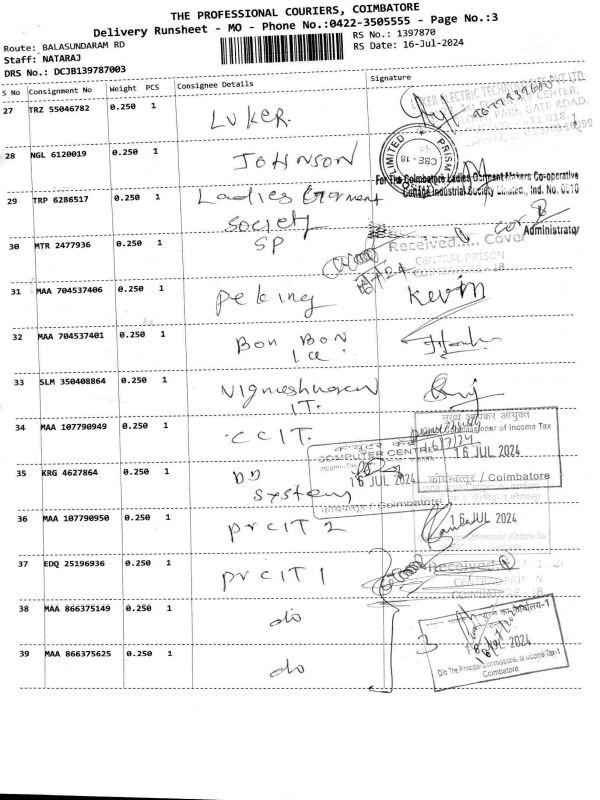 THE PROFESSIONAL COURIERS, COIMBATORE
Delivery Runsheet - MO - Phone No.:0422-3505555 - Page No.:3
Route: BALASUNDARAM RD
RS No.: 1397870
Staff: NATARAJ
RS Date: 16-Jul-2024
DRS No.: DCJB139787003
S No Consignment No Weight PCS Consignee Details Signature
27 TRZ 55046782 0.250 1 LUKER
28 NGL 6120019 0.250 1 JOHNSON
PRISM
LIMITED
CBE - 18
For The Coimbatore Ladies Garment Makers Co-operative
Cottage Industrial Society Limited., Ind. No. 0610
29 TRP 6286517 0.250 1 Ladies Garment
Society
Administrator
30 MTR 2477936 0.250 1 SP
Received..... Cover
CENTRAL PRISON
31 MAA 704537406 0.250 1 Peking Kevin
32 MAA 704537401 0.250 1 Bon Bon
Ice
33 SLM 350408864 0.250 1 Vigneshwaran
IT.
34 MAA 107790949 0.250 1 CCIT.
मुख्य आयकर आयुक्त
Commissioner of Income Tax
16/7/24
16 JUL 2024
कोयंबत्तूर / Coimbatore
कंप्यूटर केंद्र
COMPUTER CENTRE
16 JUL 2024
कोयंबत्तूर / Coimbatore
35 KRG 4627864 0.250 1 DD
System
36 MAA 107790950 0.250 1 PrCIT 2
16 JUL 2024
Commissioner of Income Tax
37 EDQ 25196936 0.250 1 PrCIT 1
Received
CENTRAL PRISON
38 MAA 866375149 0.250 1 do
39 MAA 866375625 0.250 1 do
3
JUL 2024
O/o The Principal Commissioner of Income Tax-1
Coimbatore